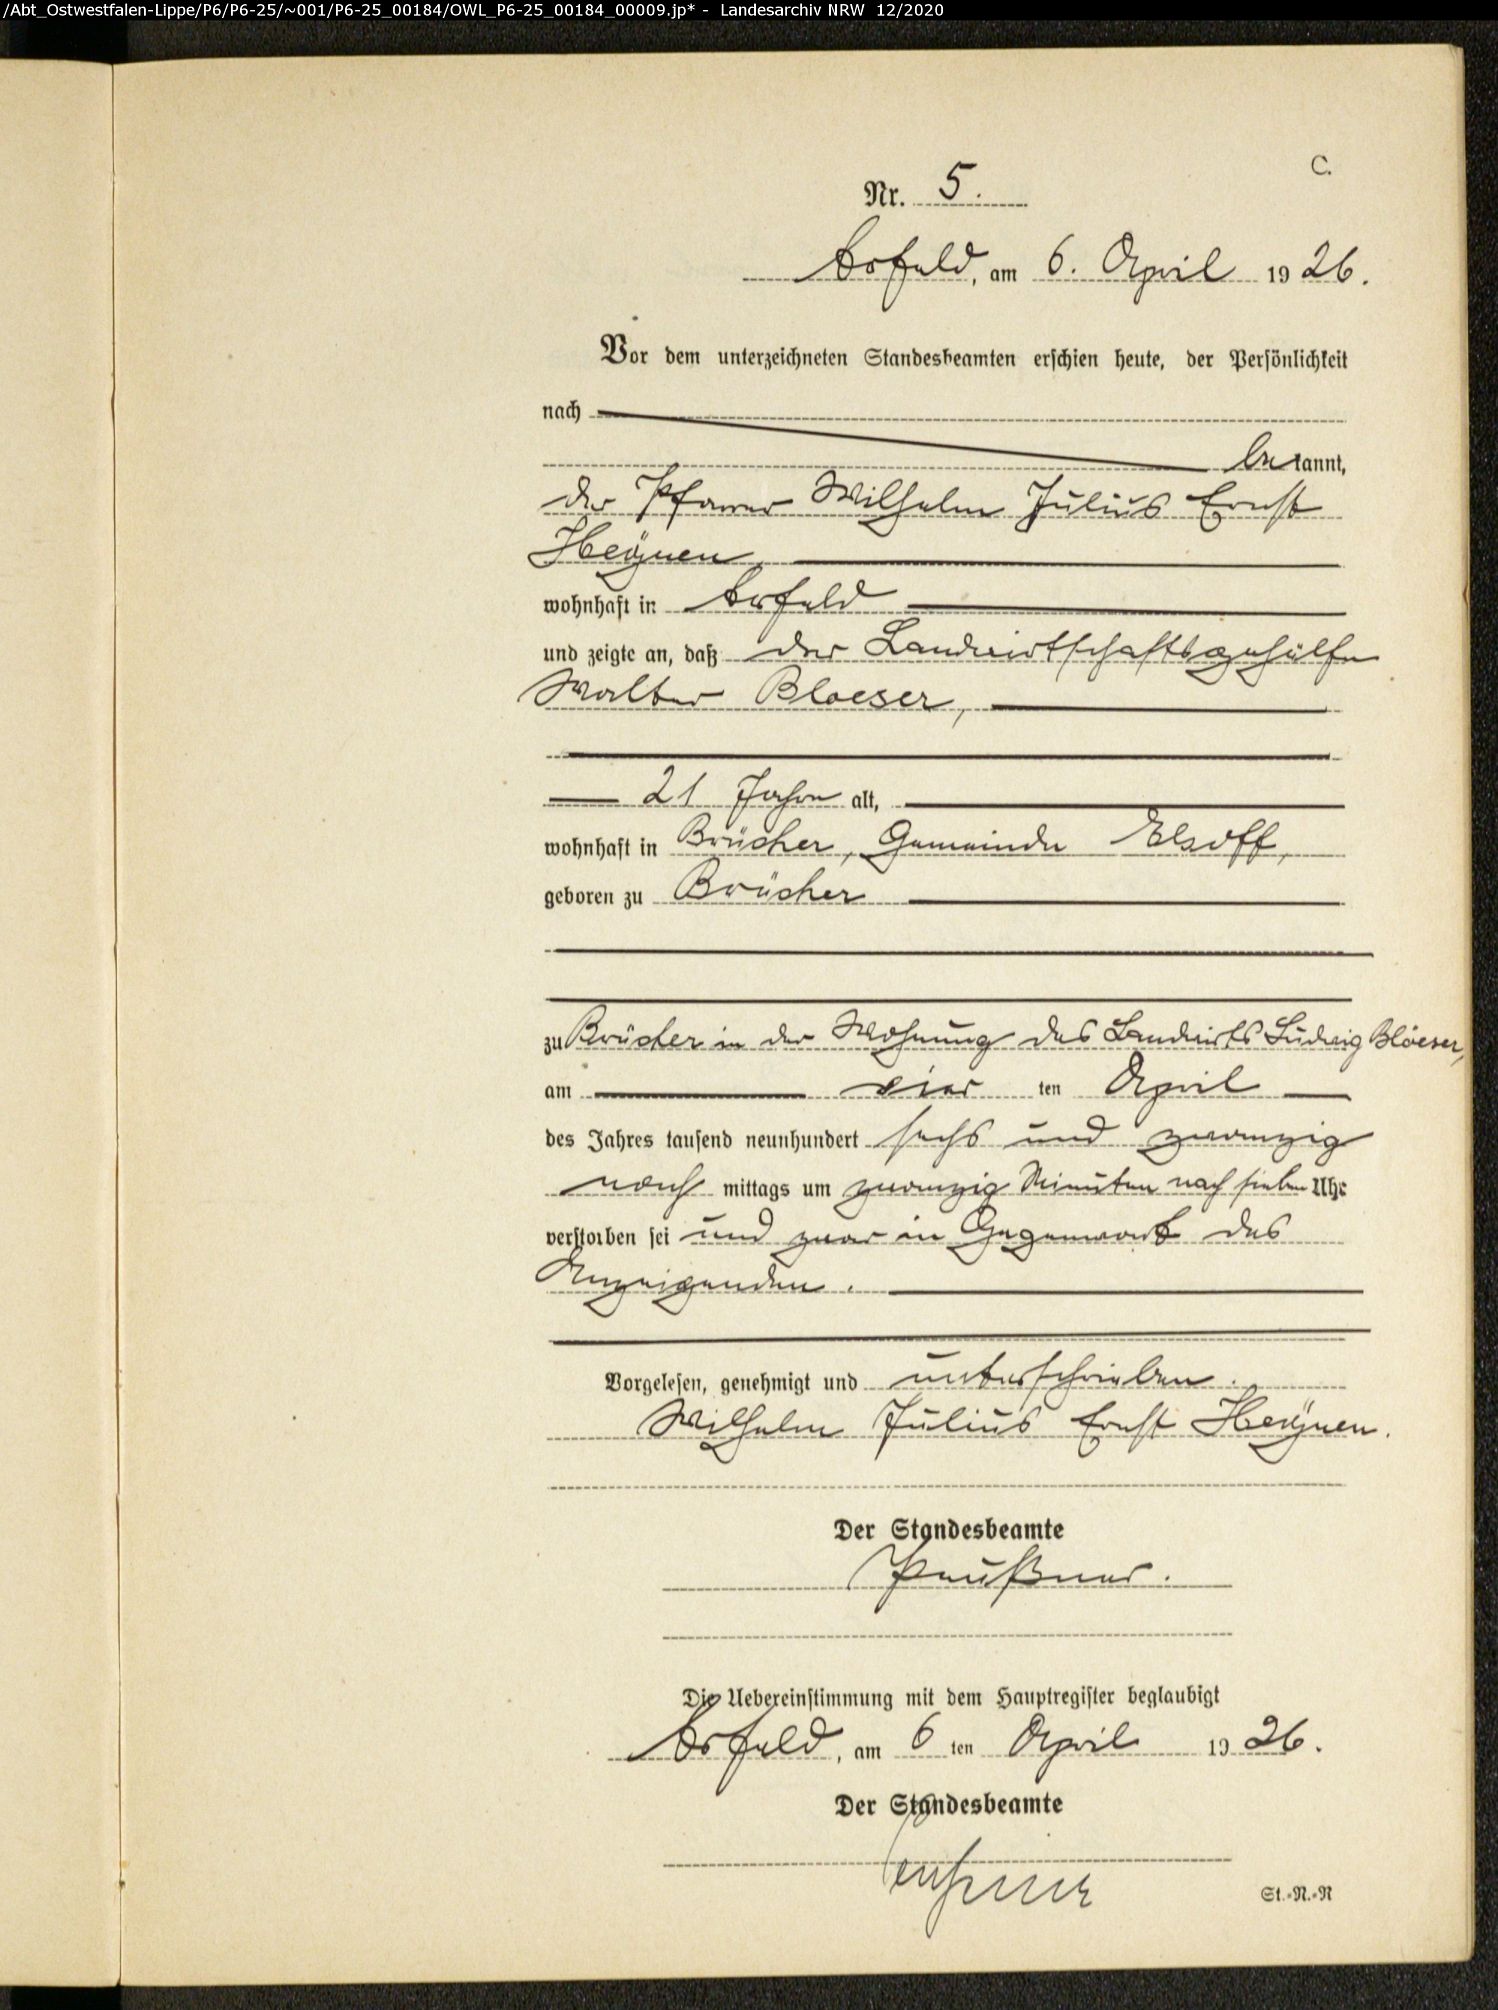 /Abt_Ostwestfalen-Lippe/P6/P6-25/~001/P6-25_00184/OWL_P6-25_00184_00009.jp* - Landesarchiv NRW 12/2020
C.
Nr. 5.
Arfeld, am 6. April 1926.
Vor dem unterzeichneten Standesbeamten erschien heute, der Persönlichkeit
nach
bekannt,
der Pfarrer Wilhelm Julius Ernst
Heynen,
wohnhaft in Arfeld
und zeigte an, daß der Landwirtschaftsgehülfe
Walter Bloeser,
21 Jahre alt,
wohnhaft in Brücher, Gemeinde Elsoff,
geboren zu Brücher
zu Brücher in der Wohnung des Landwirts Ludwig Blöeser,
am vier ten April
des Jahres tausend neunhundert sechs und zwanzig
nach mittags um zwanzig Minuten nach sieben Uhr
verstorben sei und zwar in Gegenwart des
Anzeigenden.
Vorgelesen, genehmigt und unterschrieben.
Wilhelm Julius Ernst Heynen.
Der Standesbeamte
Preußner.
Die Uebereinstimmung mit dem Hauptregister beglaubigt
Arfeld, am 6 ten April 1926.
Der Standesbeamte
St.-N.-R